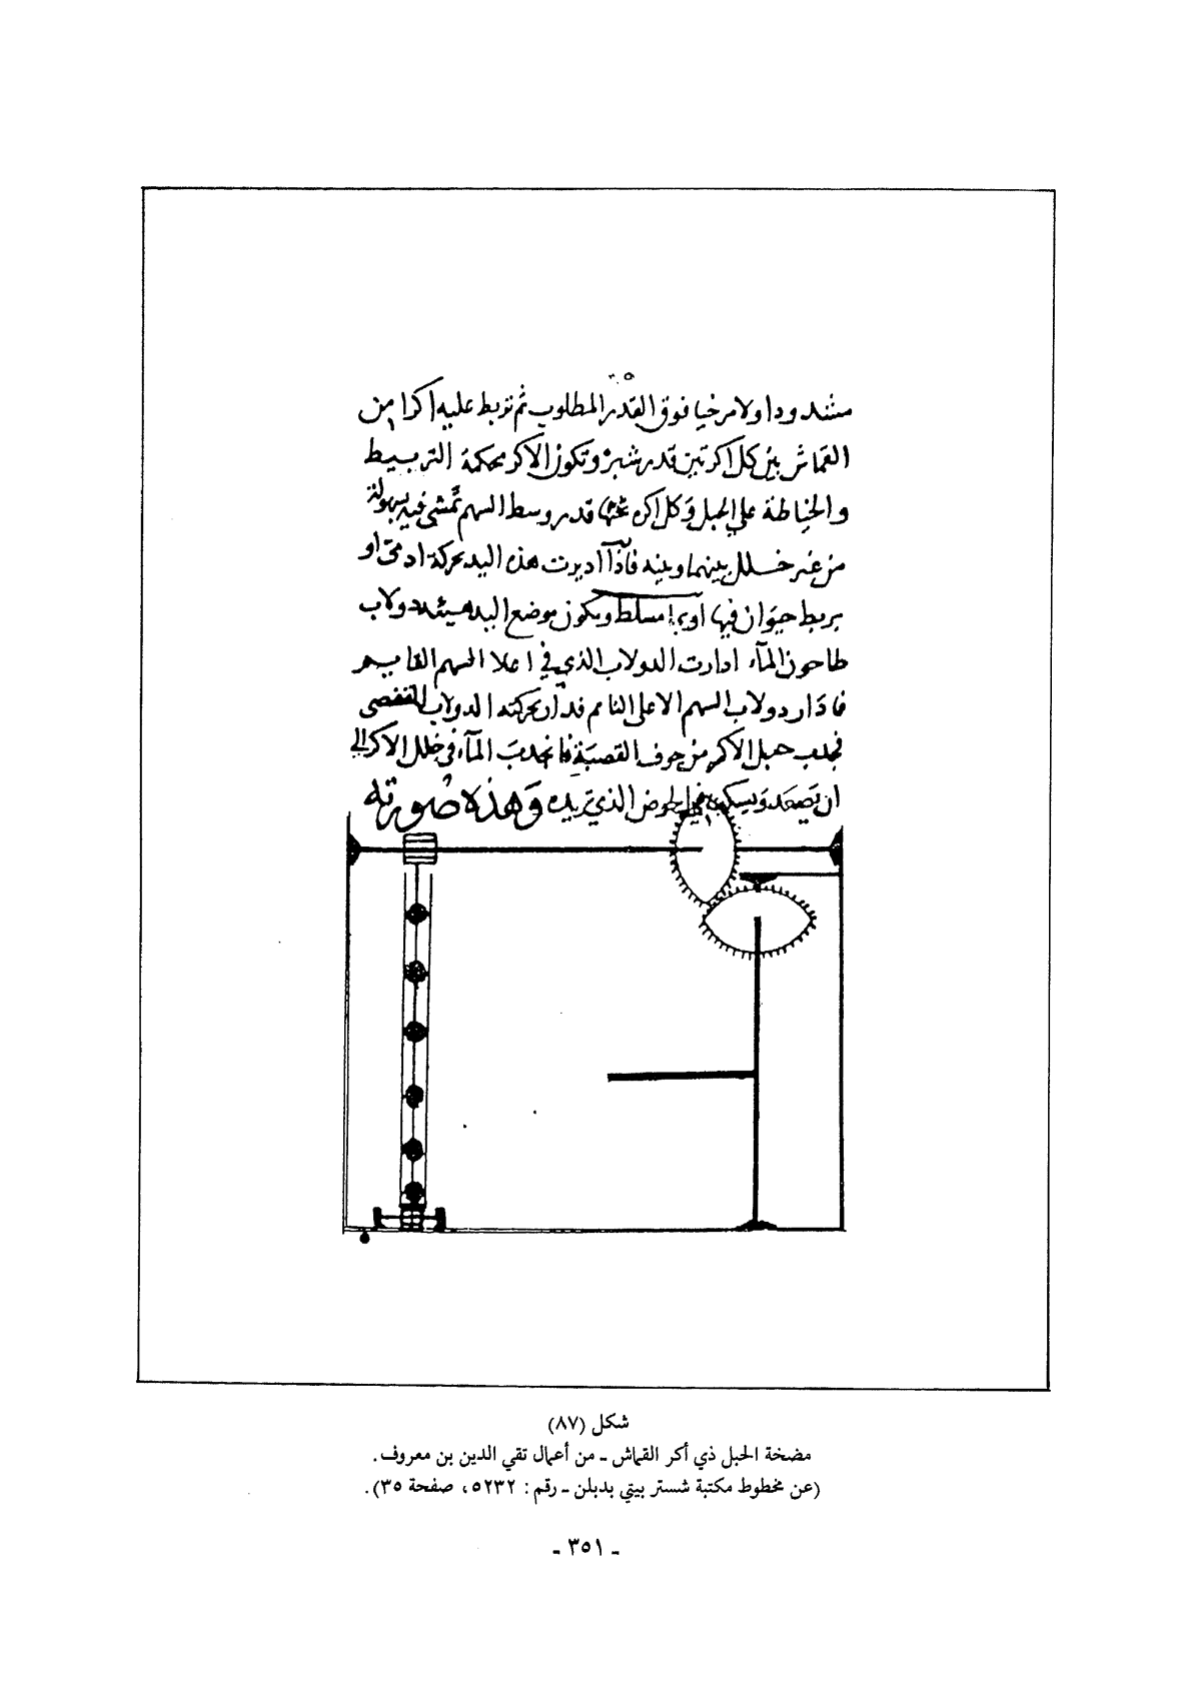 ٣٥
مشدودا ولا مرخيا فوق القدر المطلوب ثم تربط عليه اكرا من
القماش بين كل اكرتين قدر شبر وتكون الاكر محكمة التربيط
والخياطة علي الحبل وكل اكره قدر وسط السهم تمشي فيه بسهولة
من غير خلل بينهما وبينه فاذا اديرت هذه اليد بحركة ادمي او
بربط حيوان فيها او بما مسلط ويكون موضع اليد دولاب
طاحون المآء ادارت الدولاب الذي في اعلا السهم القايم
فادار دولاب السهم الاعلى النايم فدار بحركته الدولاب القفصي
فجذب حبل الاكر من جوف القصبة فانجذب المآء في خلل الاكر الي
ان يصعد ويسكب في الحوض الذي تريده وهذه صورته
شكل (٨٧)
مضخة الحبل ذي أكر القماش ـ من أعمال تقي الدين بن معروف.
(عن مخطوط مكتبة شستر بيتي بدبلن ـ رقم : ٥٢٣٢، صفحة ٣٥).
ـ ٣٥١ ـ